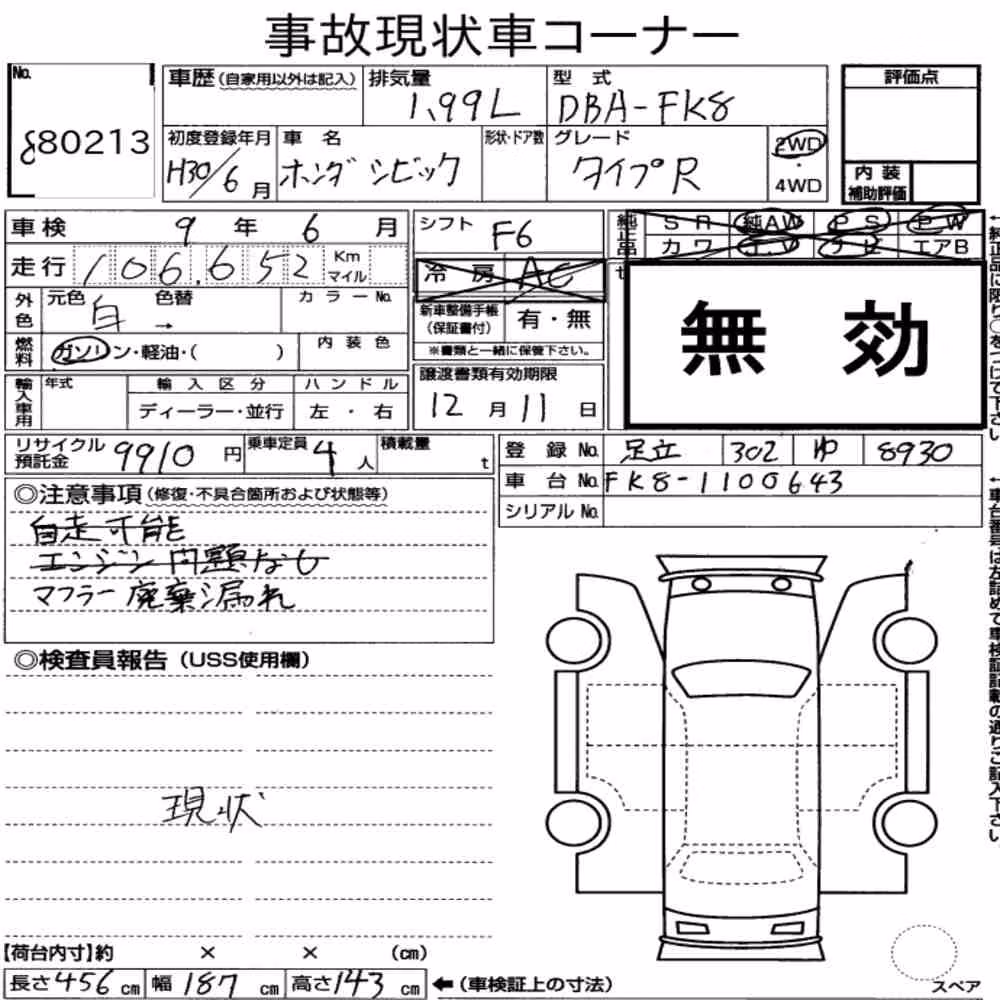 事故現状車コーナー
No. 880213
車歴(自家用以外は記入) 排気量 1.99L 型式 DBA-FK8 評価点
初度登録年月 H30/6月 車名 ホンダシビック 形状・ドア数 グレード タイプR 2WD・4WD
内装補助評価
車検 9年 6月 シフト F6 純正品 SR 純AW PS PW
走行 106.652 Km マイル 冷房 AC カワ TV ナビ エアB
外色 元色 白 色替 → カラーNo. 新車整備手帳(保証書付) 有・無
※書類と一緒に保管下さい。
無効
燃料 ガソリン・軽油・( ) 内装色
輸入車用 年式 輸入区分 ディーラー・並行 ハンドル 左・右 譲渡書類有効期限 12月11日
リサイクル預託金 9910円 乗車定員 4人 積載量 t
登録No. 足立 302 ゆ 8930
車台No. FK8-1100643
シリアルNo.
◎注意事項(修復・不具合箇所および状態等)
自走可能
エンジン問題なし
マフラー廃棄漏れ
◎検査員報告(USS使用欄)
現状
【荷台内寸】約 × × (cm)
長さ456cm 幅187cm 高さ143cm ←(車検証上の寸法)
スペア
←純正品に限り○をつけて下さい。
←車台番号は左詰めで車検証記載の通りご記入下さい。